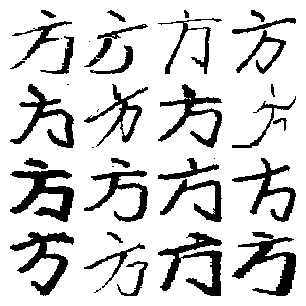 方方方方
方方方方
方方方方
方方方方